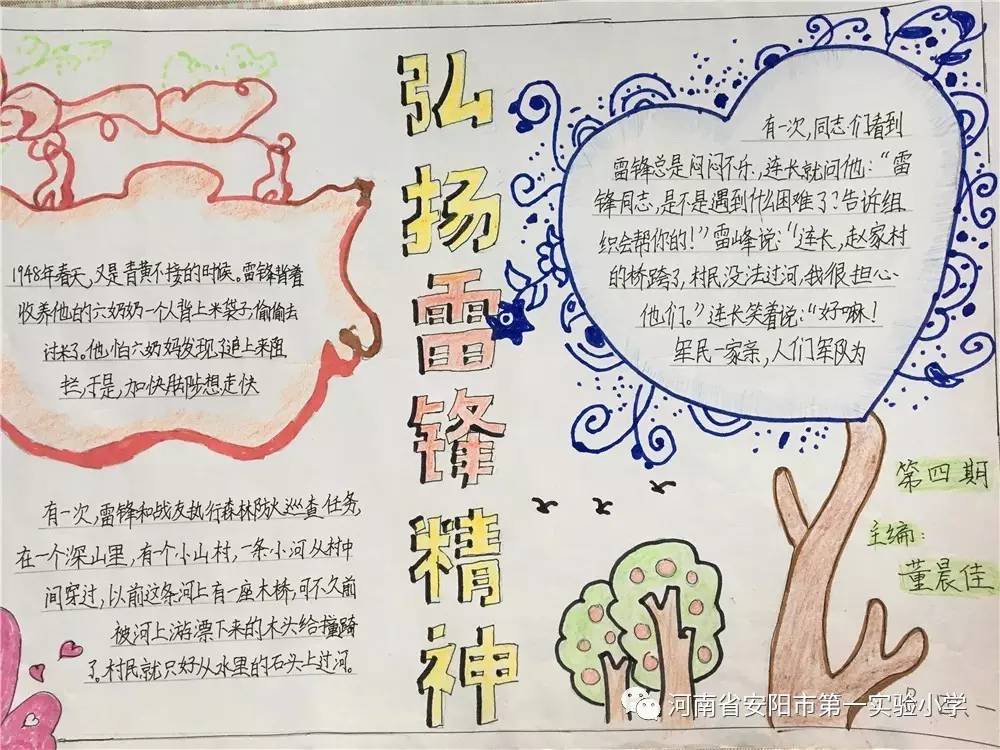 弘扬雷锋精神
1948年春天,又是青黄不接的时候。雷锋背着
收养他的六奶奶一个人背上米袋子,偷偷去
过来了。他怕六奶妈发现了追上来阻
拦,于是,加快脚步想走快
有一次,雷锋和战友执行森林防火巡查任务,
在一个深山里,有个小山村,一条小河从村中
间穿过,以前这条河上有一座木桥,可不久前
被河上游漂下来的木头给撞跨
了。村民就只好从水里的石头上过河。
有一次,同志们看到
雷锋总是闷闷不乐,连长就问他:“雷
锋同志,是不是遇到什么困难了?告诉组
织会帮你的!”雷峰说:“连长,赵家村
的桥跨了,村民没法过河,我很担心
他们。”连长笑着说:“好嘛!
军民一家亲,人们军队为
第四期
主编:
董晨佳
河南省安阳市第一实验小学